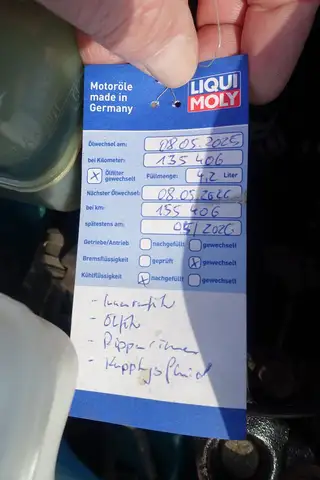 Motoröle
made in
Germany
LIQUI
MOLY
Ölwechsel am: 08.05.2025
bei Kilometer: 135 406
x Ölfilter gewechselt Füllmenge: 4,2 Liter
Nächster Ölwechsel: 08.05.2026
bei km: 155 406
spätestens am: 05/2026
Getriebe/Antrieb nachgefüllt gewechselt
Bremsflüssigkeit geprüft x gewechselt
Kühlflüssigkeit x nachgefüllt gewechselt
- Ölfilt